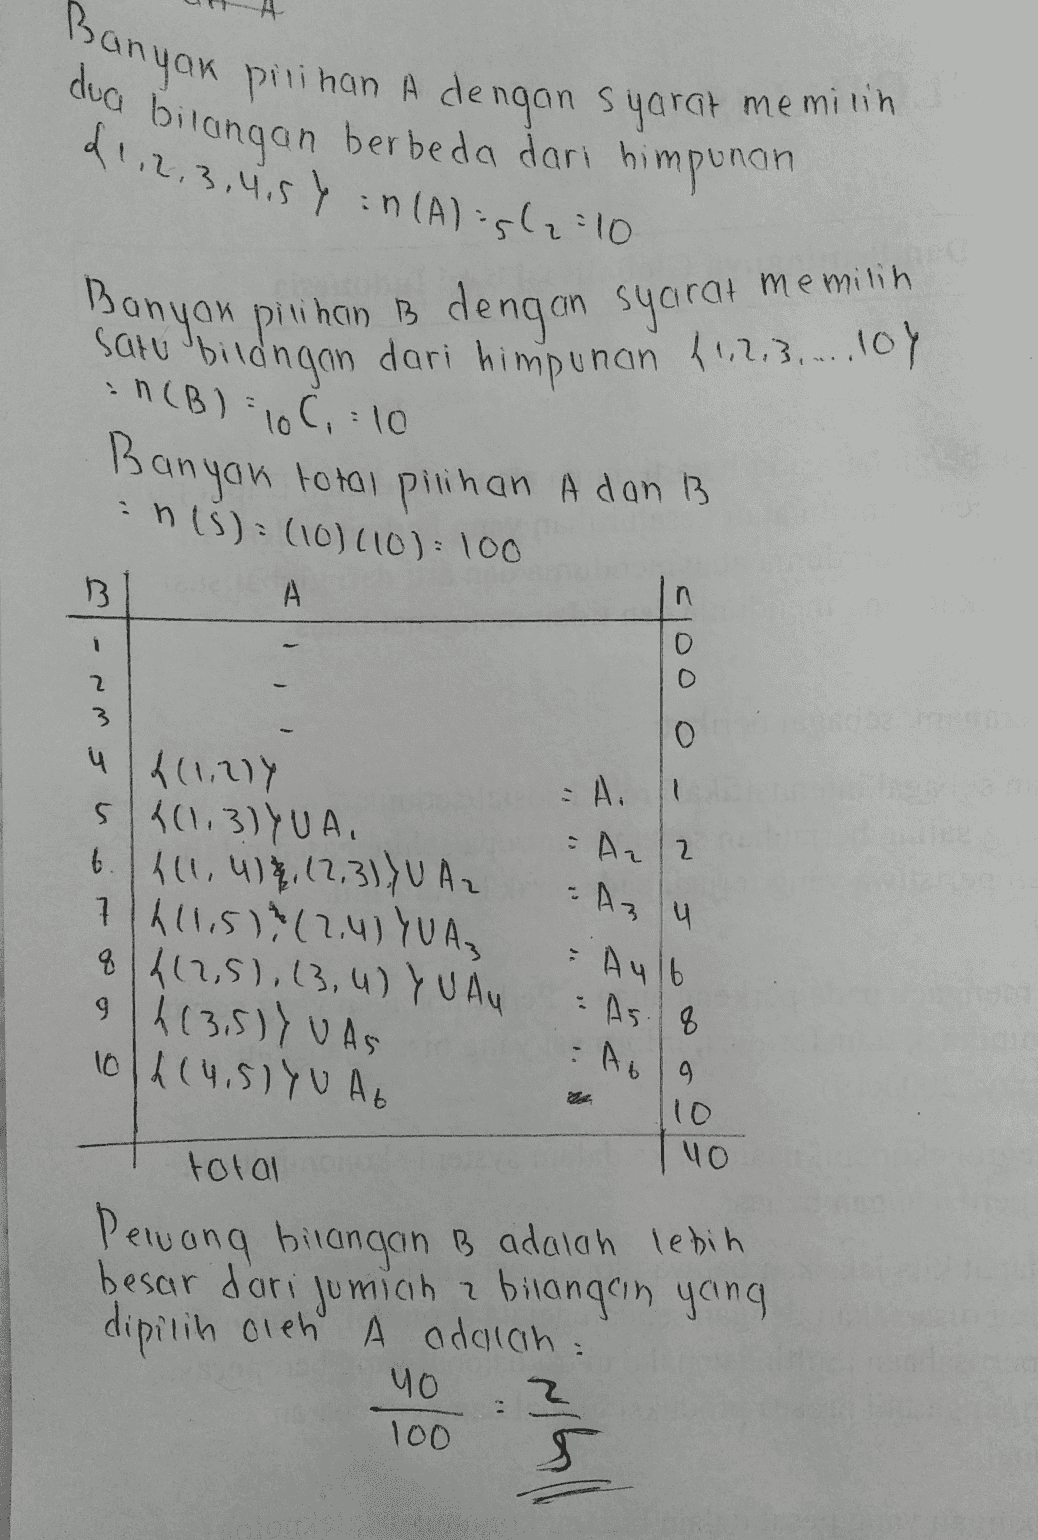 Banyak pilihan A dengan syarat memilih
dua bilangan berbeda dari himpunan
{1,2,3,4,5} : n(A) = 5C2 = 10
Banyak pilihan B dengan syarat memilih
satu bilangan dari himpunan {1,2,3,....,10}
: n(B) = 10C1 = 10
Banyak total pilihan A dan B
: n(S) = (10)(10) = 100
B A n
1 - 0
2 - 0
3 - 0
4 {(1,2)} = A1 1
5 {(1,3)} U A1 = A2 2
6. {(1,4),(2,3)} U A2 = A3 4
7 {(1,5),(2,4)} U A3 = A4 6
8 {(2,5),(3,4)} U A4 = A5 8
9 {(3,5)} U A5 = A6 9
10 {(4,5)} U A6 10
total 40
Peluang bilangan B adalah lebih
besar dari jumlah 2 bilangan yang
dipilih oleh A adalah :
40/100 = 2/5